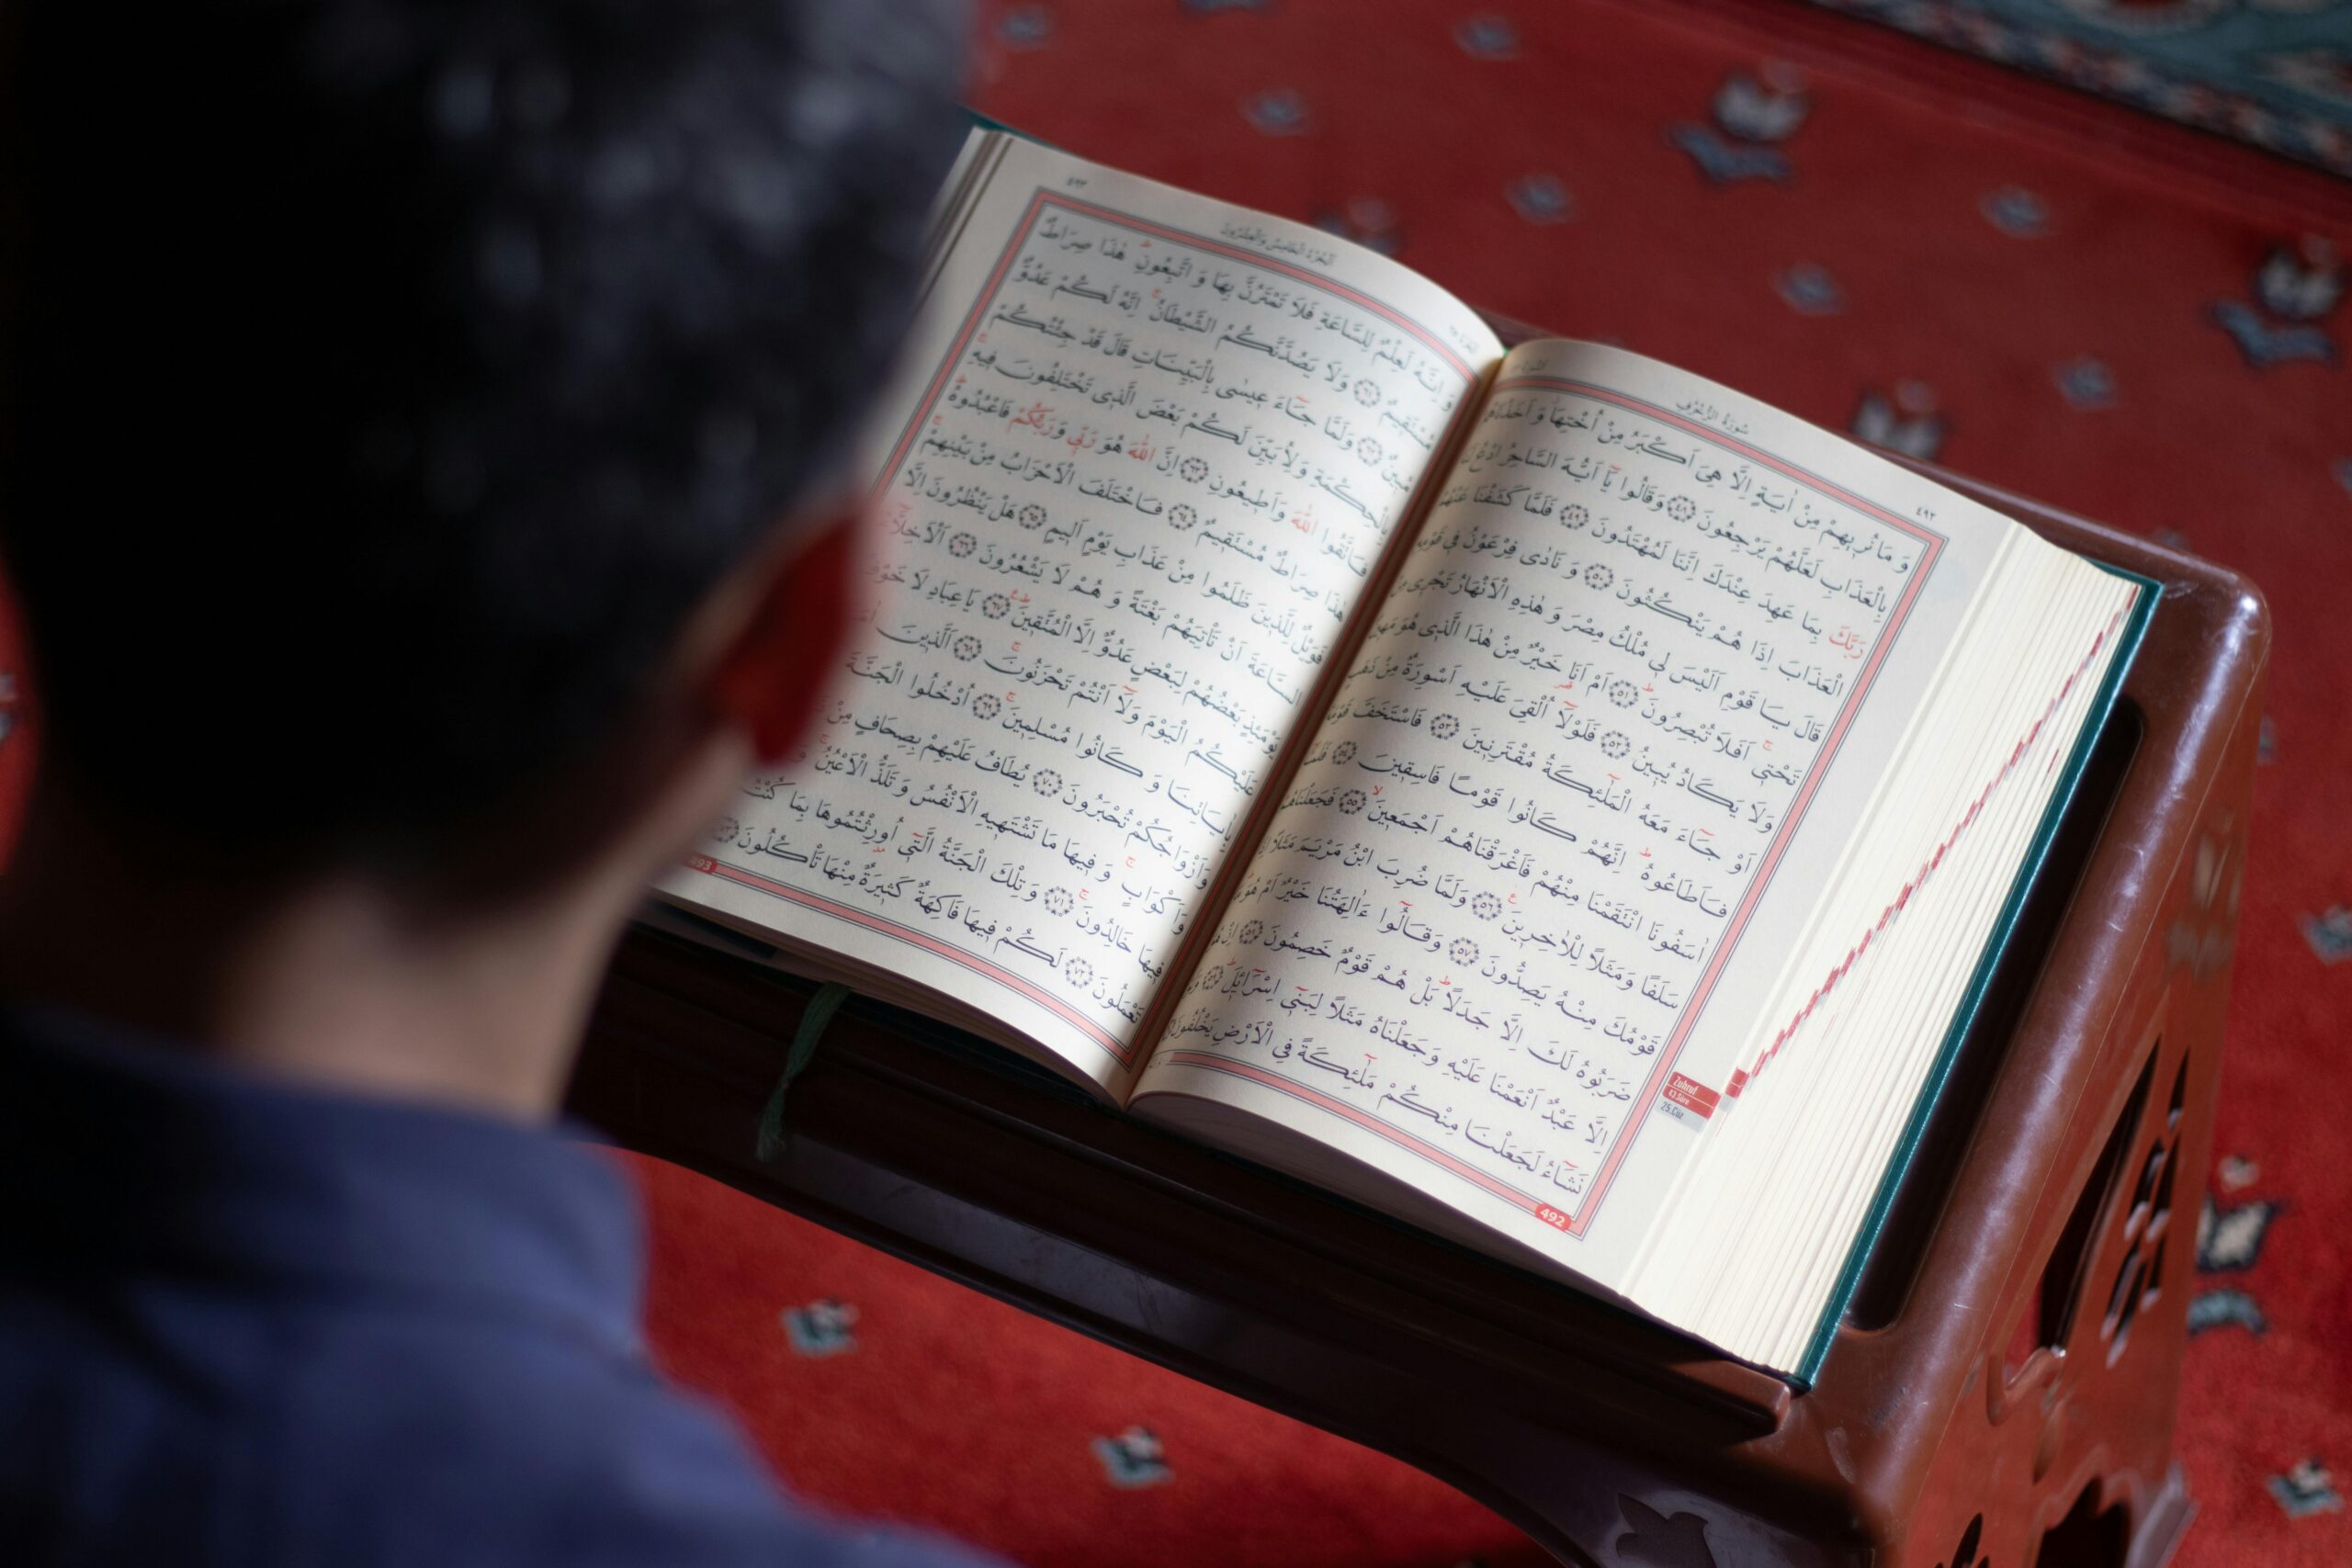 ٤٩٢
سُورَةُ الزُّخْرُفِ
وَمَا نُر۪يهِمْ مِنْ اٰيَةٍ اِلَّا هِيَ اَكْبَرُ مِنْ اُخْتِهَاۘ وَاَخَذْنَاهُمْ
بِالْعَذَابِ لَعَلَّهُمْ يَرْجِعُونَ ﴿٤٨﴾ وَقَالُوا يَٓا اَيُّهَ السَّاحِرُ ادْعُ لَنَا
رَبَّكَ بِمَا عَهِدَ عِنْدَكَ اِنَّنَا لَمُهْتَدُونَ ﴿٤٩﴾ فَلَمَّا كَشَفْنَا عَنْهُمُ
الْعَذَابَ اِذَا هُمْ يَنْكُثُونَ ﴿٥٠﴾ وَنَادٰى فِرْعَوْنُ ف۪ي قَوْمِه۪
قَالَ يَا قَوْمِ اَلَيْسَ ل۪ي مُلْكُ مِصْرَ وَهٰذِهِ الْاَنْهَارُ تَجْر۪ي مِنْ
تَحْت۪يۚ اَفَلَا تُبْصِرُونَۜ ﴿٥١﴾ اَمْ اَنَا۬ خَيْرٌ مِنْ هٰذَا الَّذ۪ي هُوَ مَه۪ينٌ
وَلَا يَكَادُ يُب۪ينُ ﴿٥٢﴾ فَلَوْلَٓا اُلْقِيَ عَلَيْهِ اَسْوِرَةٌ مِنْ ذَهَبٍ
اَوْ جَٓاءَ مَعَهُ الْمَلٰٓئِكَةُ مُقْتَرِن۪ينَ ﴿٥٣﴾ فَاسْتَخَفَّ قَوْمَهُ
فَاَطَاعُوهُۜ اِنَّهُمْ كَانُوا قَوْمًا فَاسِق۪ينَ ﴿٥٤﴾ فَلَمَّٓا
اٰسَفُونَا انْتَقَمْنَا مِنْهُمْ فَاَغْرَقْنَاهُمْ اَجْمَع۪ينَۙ ﴿٥٥﴾ فَجَعَلْنَاهُمْ
سَلَفًا وَمَثَلًا لِلْاٰخِر۪ينَ۟ ﴿٥٦﴾ وَلَمَّا ضُرِبَ ابْنُ مَرْيَمَ مَثَلًا اِذَا
قَوْمُكَ مِنْهُ يَصِدُّونَ ﴿٥٧﴾ وَقَالُٓوا ءَاٰلِهَتُنَا خَيْرٌ اَمْ هُوَۜ مَا
ضَرَبُوهُ لَكَ اِلَّا جَدَلًاۜ بَلْ هُمْ قَوْمٌ خَصِمُونَ ﴿٥٨﴾ اِنْ هُوَ
اِلَّا عَبْدٌ اَنْعَمْنَا عَلَيْهِ وَجَعَلْنَاهُ مَثَلًا لِبَن۪ٓي اِسْرَٓائ۪لَۜ ﴿٥٩﴾ وَلَوْ
نَشَٓاءُ لَجَعَلْنَا مِنْكُمْ مَلٰٓئِكَةً فِي الْاَرْضِ يَخْلُفُونَ
Zuhruf
43.Sûre
25.Cüz
492
٤٩٣
اَلْجُزْءُ الْخَامِسُ وَالْعِشْرُونَ
وَاِنَّهُ لَعِلْمٌ لِلسَّاعَةِ فَلَا تَمْتَرُنَّ بِهَا وَاتَّبِعُونِۜ هٰذَا صِرَاطٌ
مُسْتَق۪يمٌ ﴿٦١﴾ وَلَا يَصُدَّنَّكُمُ الشَّيْطَانُۚ اِنَّهُ لَكُمْ عَدُوٌّ
مُب۪ينٌ ﴿٦٢﴾ وَلَمَّا جَٓاءَ ع۪يسٰى بِالْبَيِّنَاتِ قَالَ قَدْ جِئْتُكُمْ
بِالْحِكْمَةِ وَلِاُبَيِّنَ لَكُمْ بَعْضَ الَّذ۪ي تَخْتَلِفُونَ ف۪يهِۚ
فَاتَّقُوا اللّٰهَ وَاَط۪يعُونِ ﴿٦٣﴾ اِنَّ اللّٰهَ هُوَ رَبّ۪ي وَرَبُّكُمْ فَاعْبُدُوهُۜ
هٰذَا صِرَاطٌ مُسْتَق۪يمٌ ﴿٦٤﴾ فَاخْتَلَفَ الْاَحْزَابُ مِنْ بَيْنِهِمْۚ
فَوَيْلٌ لِلَّذ۪ينَ ظَلَمُوا مِنْ عَذَابِ يَوْمٍ اَل۪يمٍ ﴿٦٥﴾ هَلْ يَنْظُرُونَ اِلَّا
السَّاعَةَ اَنْ تَأْتِيَهُمْ بَغْتَةً وَهُمْ لَا يَشْعُرُونَ ﴿٦٦﴾ اَلْاَخِلَّٓاءُ
يَوْمَئِذٍ بَعْضُهُمْ لِبَعْضٍ عَدُوٌّ اِلَّا الْمُتَّق۪ينَۜ ﴿٦٧﴾ يَا عِبَادِ لَا خَوْفٌ
عَلَيْكُمُ الْيَوْمَ وَلَٓا اَنْتُمْ تَحْزَنُونَۚ ﴿٦٨﴾ اَلَّذ۪ينَ
بِاٰيَاتِنَا وَكَانُوا مُسْلِم۪ينَۚ ﴿٦٩﴾ اُدْخُلُوا الْجَنَّةَ
وَاَزْوَاجُكُمْ تُحْبَرُونَ ﴿٧٠﴾ يُطَافُ عَلَيْهِمْ بِصِحَافٍ مِنْ
وَاَكْوَابٍۚ وَف۪يهَا مَا تَشْتَه۪يهِ الْاَنْفُسُ وَتَلَذُّ الْاَعْيُنُۚ
ف۪يهَا خَالِدُونَۚ ﴿٧١﴾ وَتِلْكَ الْجَنَّةُ الَّت۪ٓي اُو۫رِثْتُمُوهَا بِمَا كُنْتُمْ
تَعْمَلُونَ ﴿٧٢﴾ لَكُمْ ف۪يهَا فَاكِهَةٌ كَث۪يرَةٌ مِنْهَا تَأْكُلُونَ
493